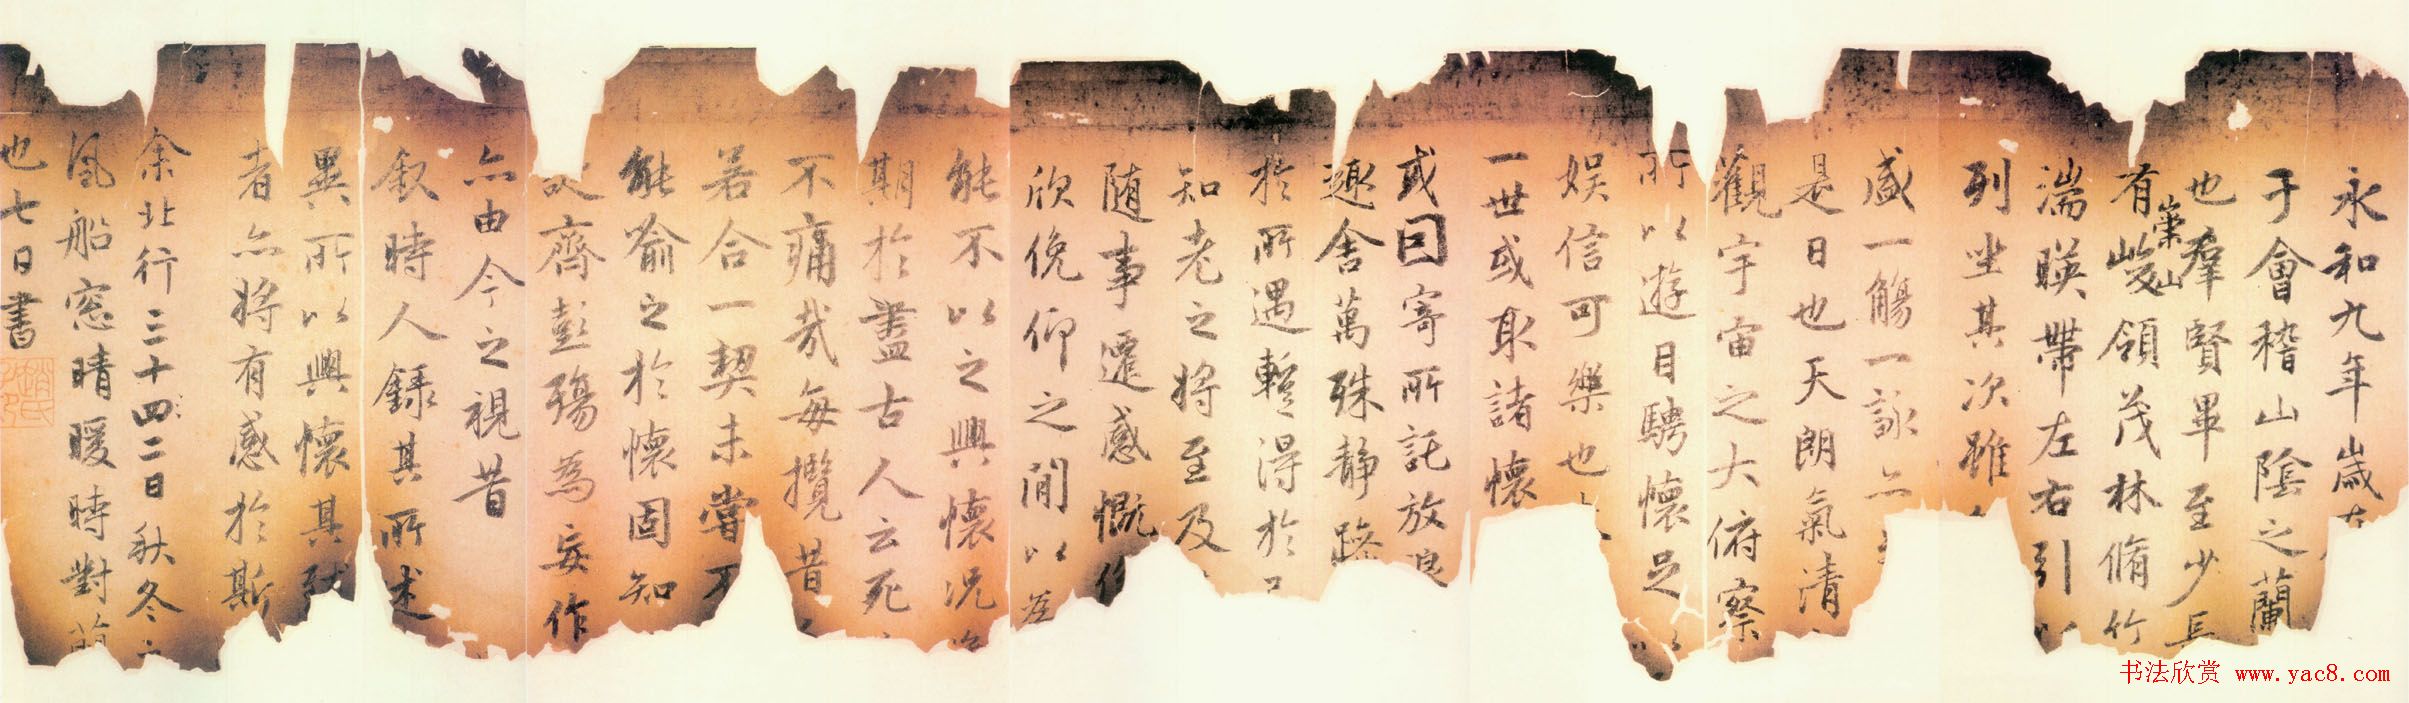 永和九年歲
于會稽山陰之蘭
也羣賢畢至少長
有崇山峻領茂林脩竹
湍暎帶左右引以
列坐其次雖
盛一觴一詠亦
是日也天朗氣清
觀宇宙之大俯察
所以遊目騁懷足以
娛信可樂也
一世或取諸懷
或因寄所託放浪
趣舍萬殊靜躁
於所遇蹔得於
知老之將至及
隨事遷感慨係
欣俛仰之閒以為
能不以之興懷況脩
期於盡古人云死
不痛哉每攬昔
若合一契未嘗不
能喻之於懷固知
齊彭殤為妄作
亦由今之視昔
敘時人錄其所述
異所以興懷其致
者亦將有感於斯
余北行三十四二日秋冬
風船窓晴暖時對蘭
也七日書
书法欣赏 www.yac8.com